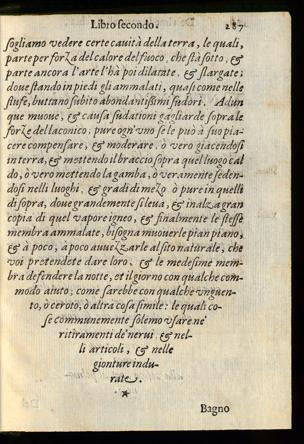 Libro secondo. 287
sogliamo vedere certe cauità della terra, le quali,
parte per forza del calore del fuoco, che stà sotto, &
parte ancora l'arte l'hà poi dilatate, & slargate;
doue stando in piedi gli ammalati, quasi come nelle
stufe, buttano subito abondantißimi sudori. Adun
que muoue, & causa sudationi gagliarde sopra le
forze del laconico. pure ogn'vno se le può à suo pia-
cere compensare, & moderare, ò vero giacendosi
in terra, & mettendo il braccio sopra quel luogo cal
do, ò vero mettendo la gamba, ò veramente seden-
dosi nelli luoghi, & gradi di mezo ò pure in quelli
di sopra, doue grandemente si leua, & inalza gran
copia di quel vapore igneo, & finalmente le stesse
membra ammalate, bisogna muouerle pian piano,
& à poco, à poco auuezzarle al sito naturale, che
voi pretendete dare loro, & le medesime mem-
bra defendere la notte, et il giorno con qualche com-
modo aiuto; come sarebbe con qualche vnguen-
to, ò ceroto, ò altra cosa simile: le quali co-
se communemente solemo vsare ne'
ritiramenti de' nerui, & nel-
li articoli, & nelle
gionture indu-
rate.
*
Bagno